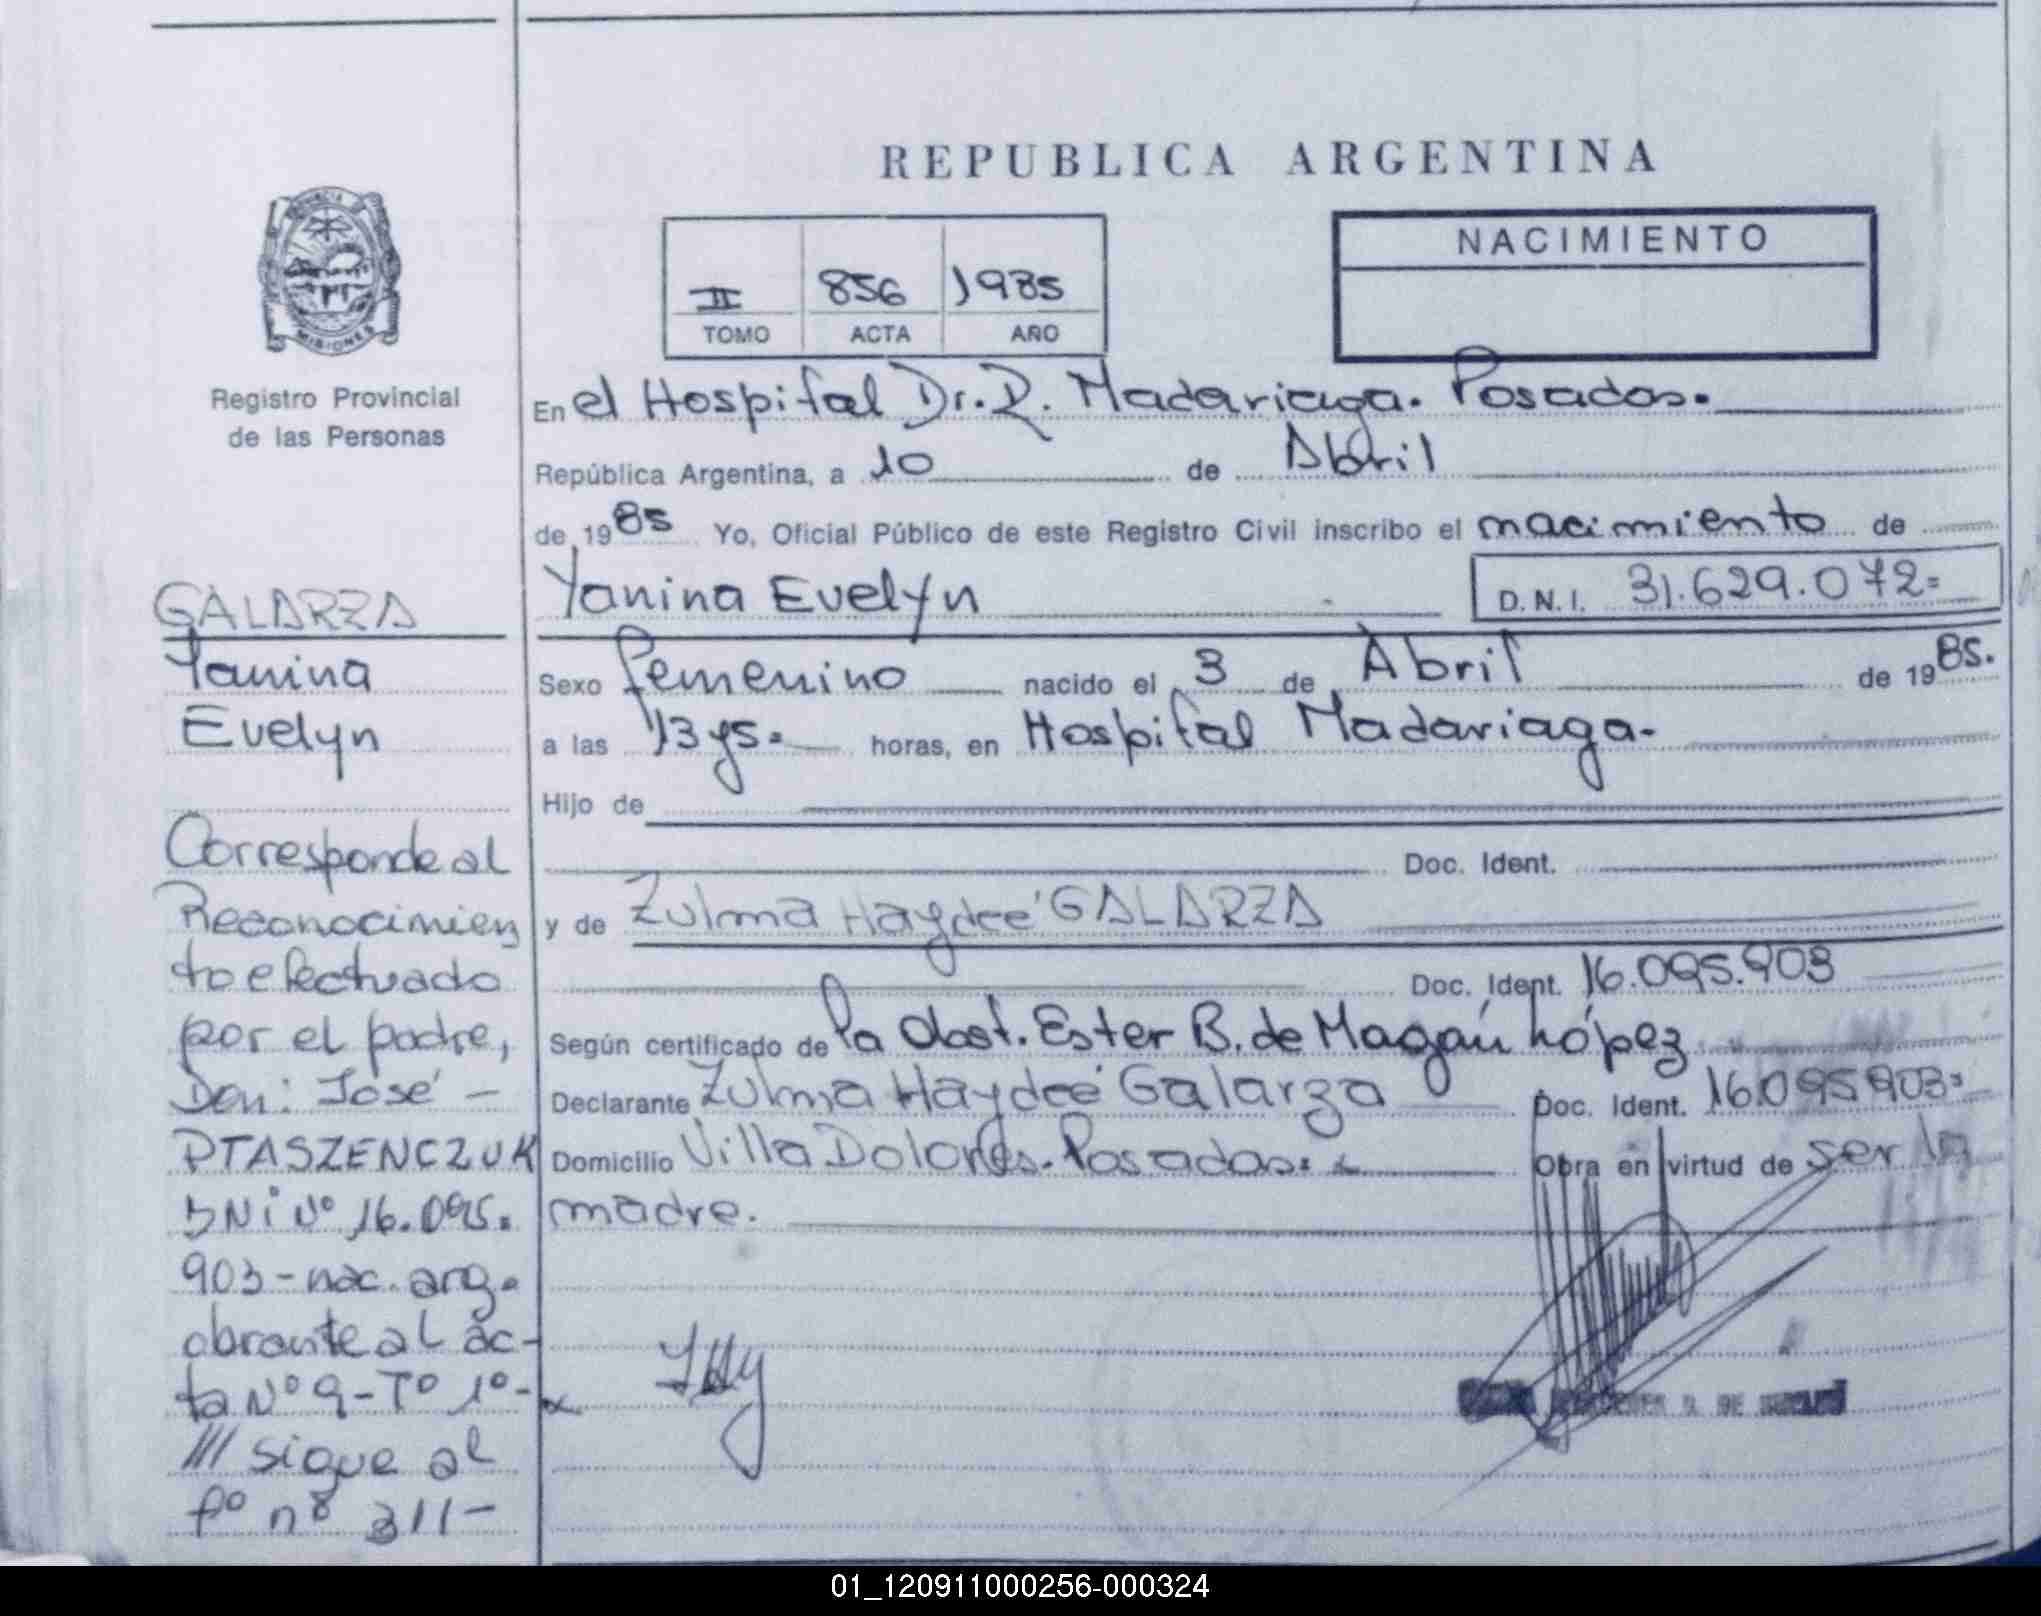 REPUBLICA ARGENTINA
NACIMIENTO
II 856 1985
TOMO ACTA AÑO
PROVINCIA
MISIONES
Registro Provincial
de las Personas
En el Hospital Dr. R. Madariaga. Posadas.
República Argentina, a 10 de Abril
de 1985 Yo, Oficial Público de este Registro Civil inscribo el nacimiento de
Yanina Evelyn D.N.I. 31.629.072=
Sexo femenino nacido el 3 de Abril de 1985.
a las 13 ys. horas, en Hospital Madariaga.
Hijo de
Doc. Ident.
y de Zulma Haydeé GALARZA
Doc. Ident. 16.095.903
Según certificado de la Obst. Ester B. de Magán López
Declarante Zulma Haydeé Galarza Doc. Ident. 16.095.903=
Domicilio Villa Dolores. Posadas. Obra en virtud de ser la
madre.
GALARZA
Yanina
Evelyn
Corresponde al
Reconocimien
to efectuado
por el padre,
Don: José -
PTASZENCZUK
DNI Nº 16.095.
903-nac. arg.
obrante al ac-
ta Nº 9-Tº 1º-
/// sigue al
fº nº 311-
01_120911000256-000324